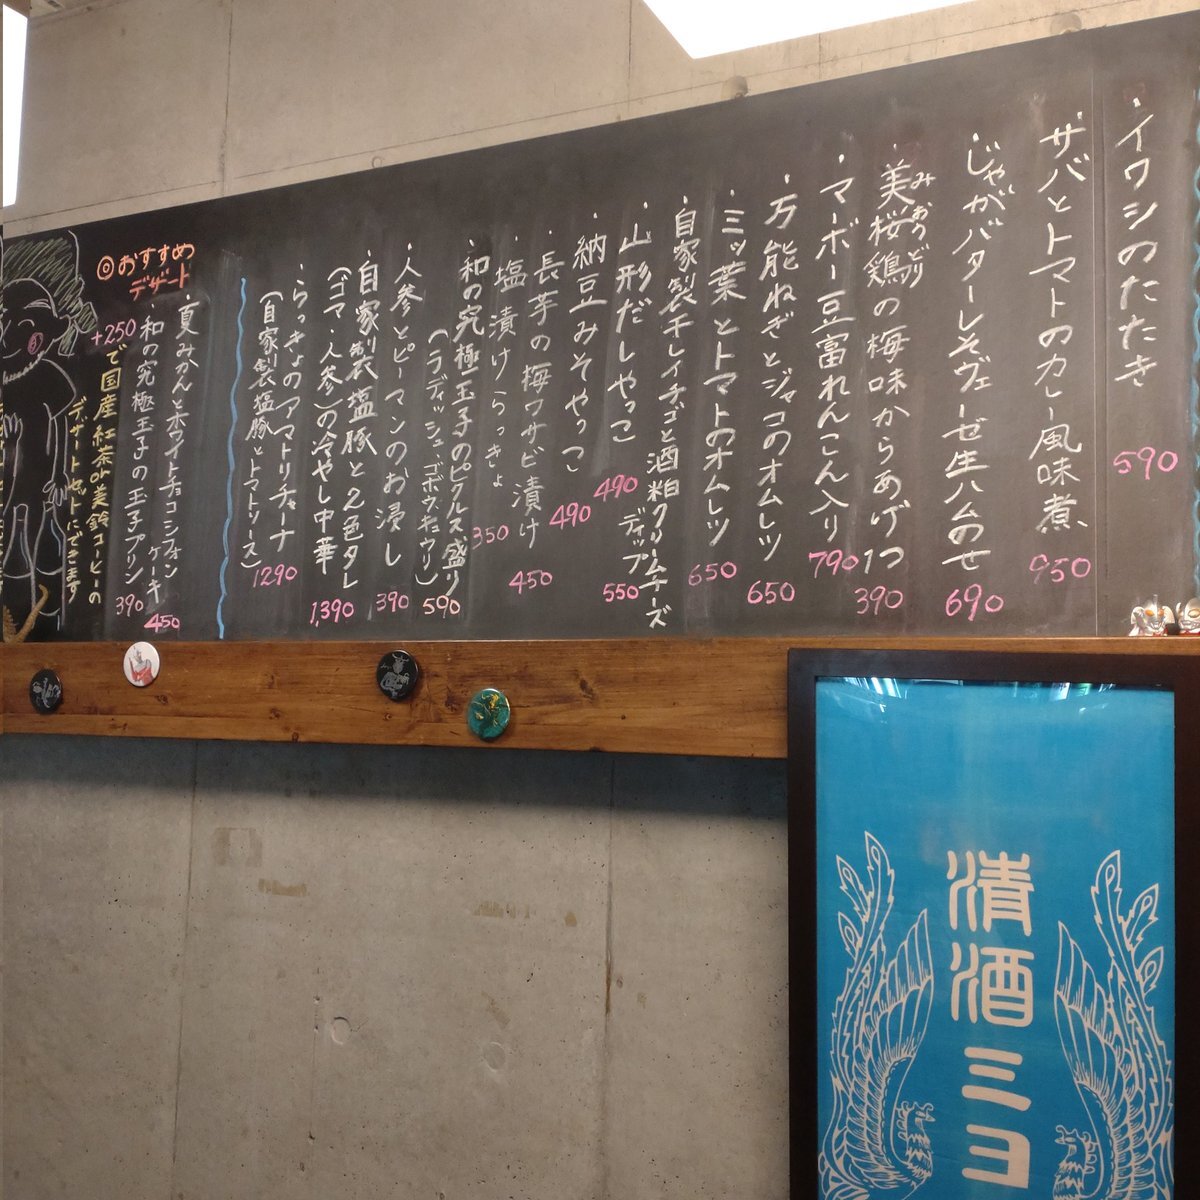 ・イワシのたたき
590
・サバとトマトのカレー風味煮
950
・じゃがバターしそヴェーゼ生ハムのせ
690
みおうどり
・美桜鶏の梅味からあげ1つ
390
・マーボー豆富れんこん入り
790
・万能ねぎとジャコのオムレツ
650
・ミツ葉とトマトのオムレツ
650
・自家製干しイチゴと酒粕クリームチーズ
ディップ
550
・山形だしやっこ
490
・納豆みそやっこ
490
・長芋の梅ワサビ漬け
450
・塩漬けらっきょ
350
・和の究極玉子のピクルス盛り
(ラディッシュ、ゴボウ、キュウリ)
590
・人参とピーマンのお浸し
390
・自家製塩豚と2色タレ
(ゴマ・人参)の冷やし中華
1,390
・らっきょのアマトリチャーナ
(自家製塩豚とトマトソース)
1290
◎おすすめ
デザート
・夏みかんとホワイトチョコシフォン
ケーキ
450
・和の究極玉子の玉子プリン
390
+250で国産紅茶or美鈴コーヒーの
デザートセットにできます
清酒ミヨ